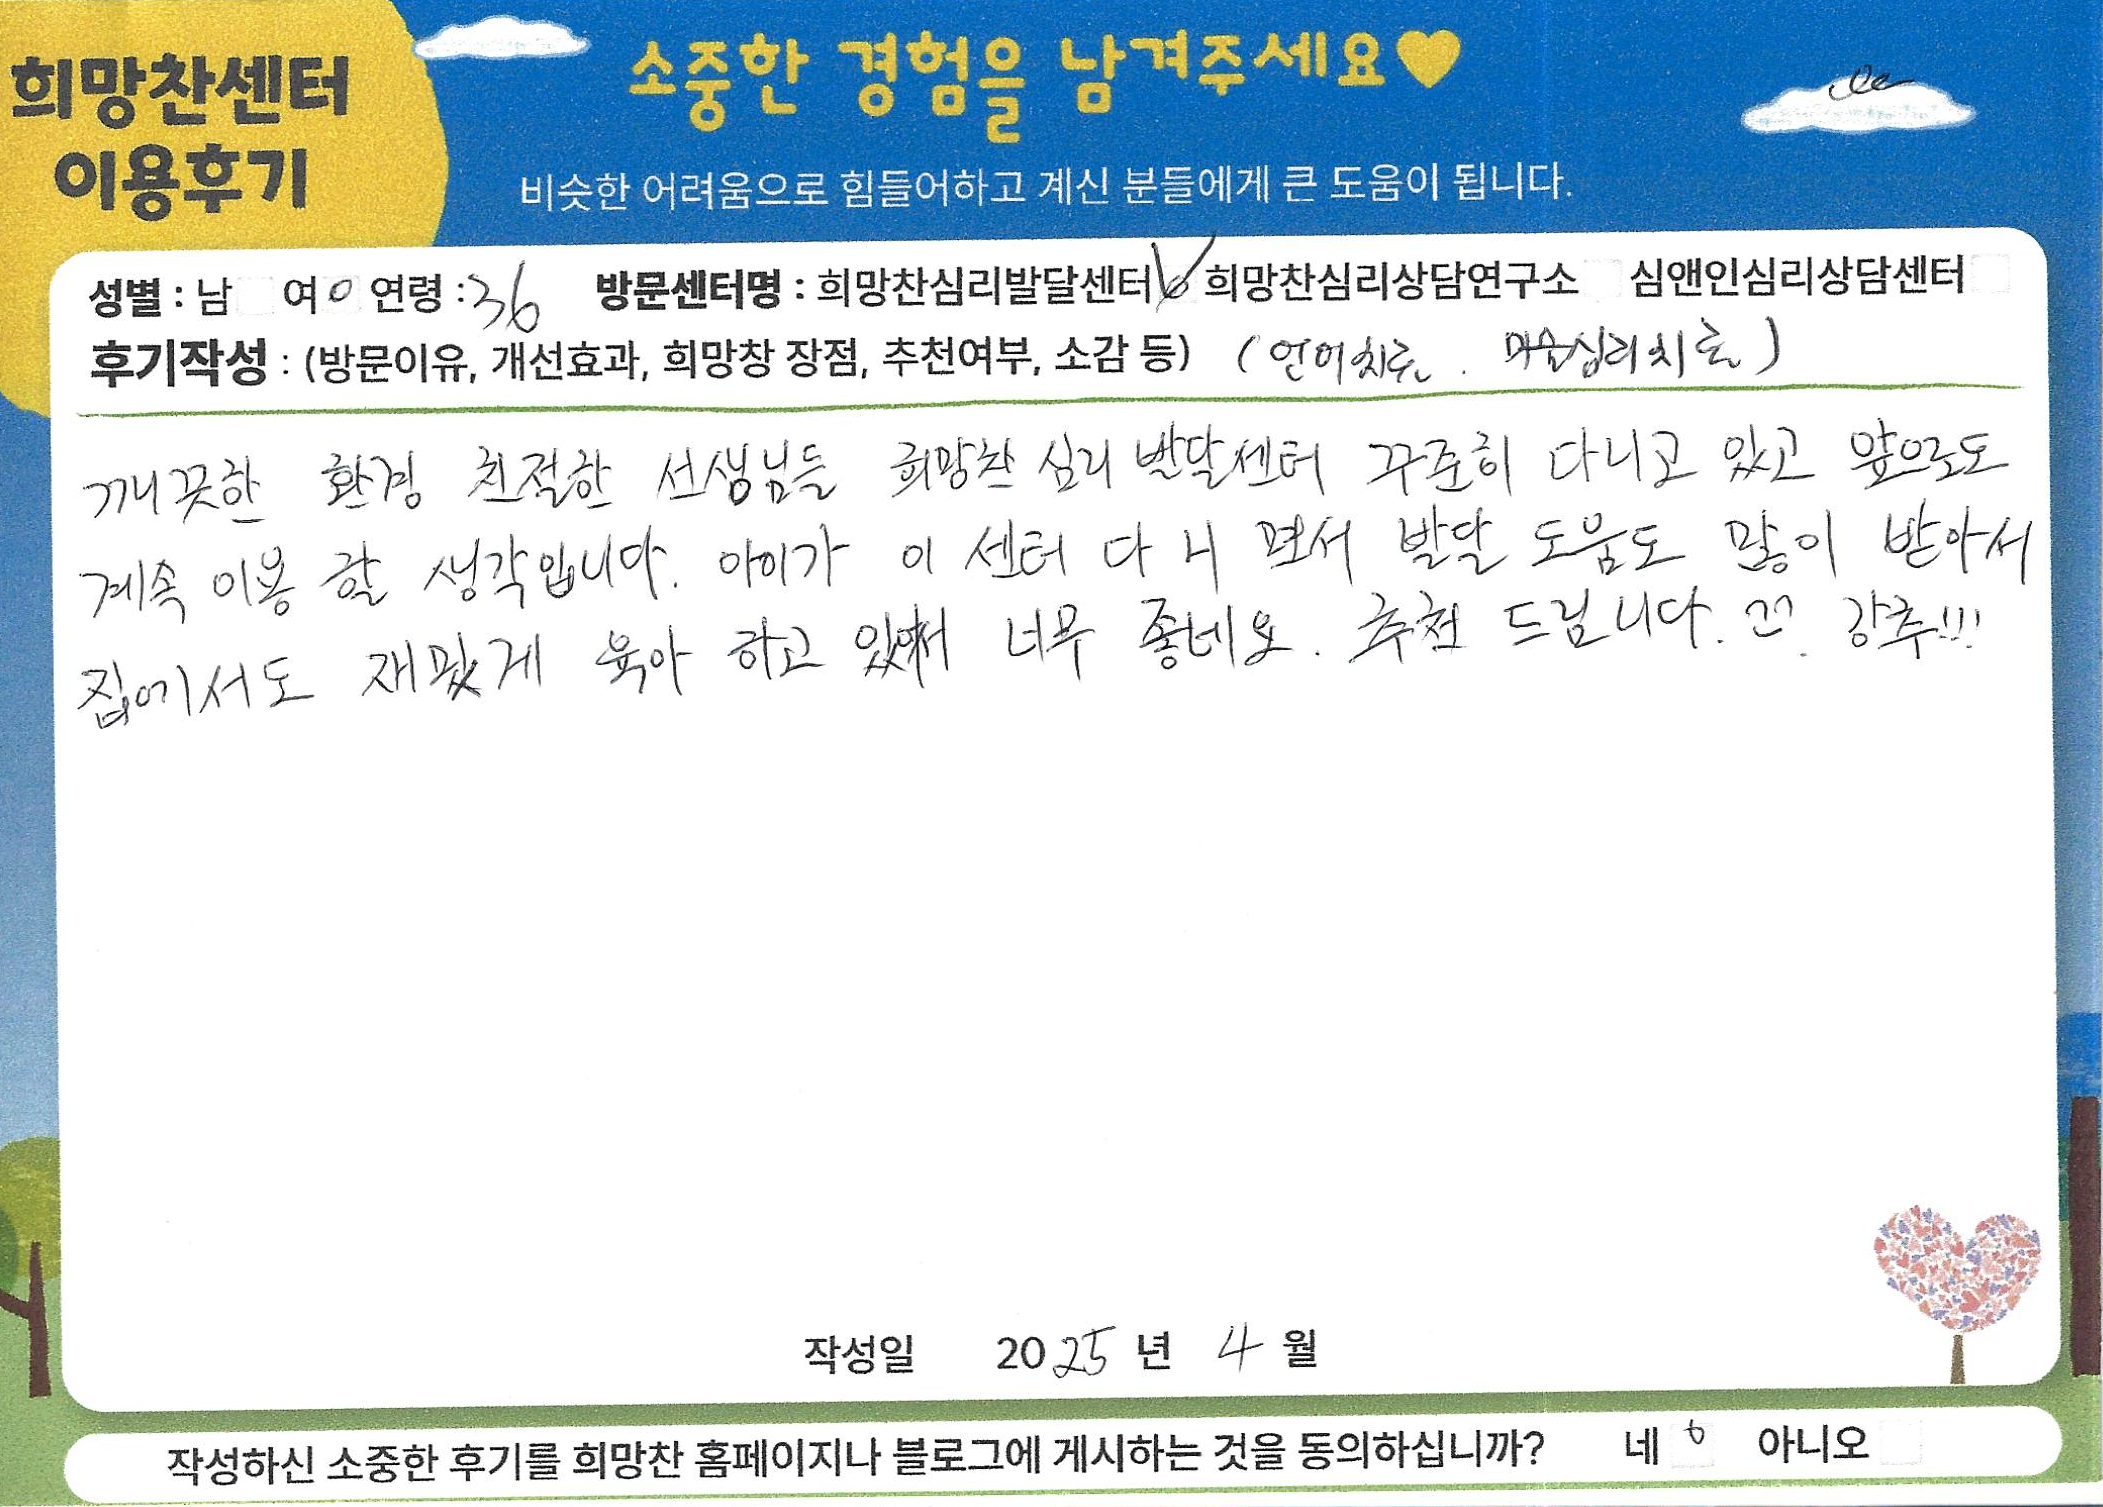 희망찬센터
이용후기
소중한 경험을 남겨주세요
비슷한 어려움으로 힘들어하고 계신 분들에게 큰 도움이 됩니다.
성별 : 남 여 o 연령 : 36 방문센터명 : 희망찬심리발달센터 ✓ 희망찬심리상담연구소 심앤인심리상담센터
후기작성 : (방문이유, 개선효과, 희망창 장점, 추천여부, 소감 등) (언어치료. 마음심리치료)
깨끗한 환경 친절한 선생님들 희망찬 심리 발달센터 꾸준히 다니고 있고 앞으로도
계속 이용 할 생각입니다. 아이가 이 센터 다 니 면서 발달 도움도 많이 받아서
집에서도 재밌게 육아 하고 있어서 너무 좋네요. 추천 드립니다. 강추!!!
작성일 2025 년 4 월
작성하신 소중한 후기를 희망찬 홈페이지나 블로그에 게시하는 것을 동의하십니까? 네 o 아니오